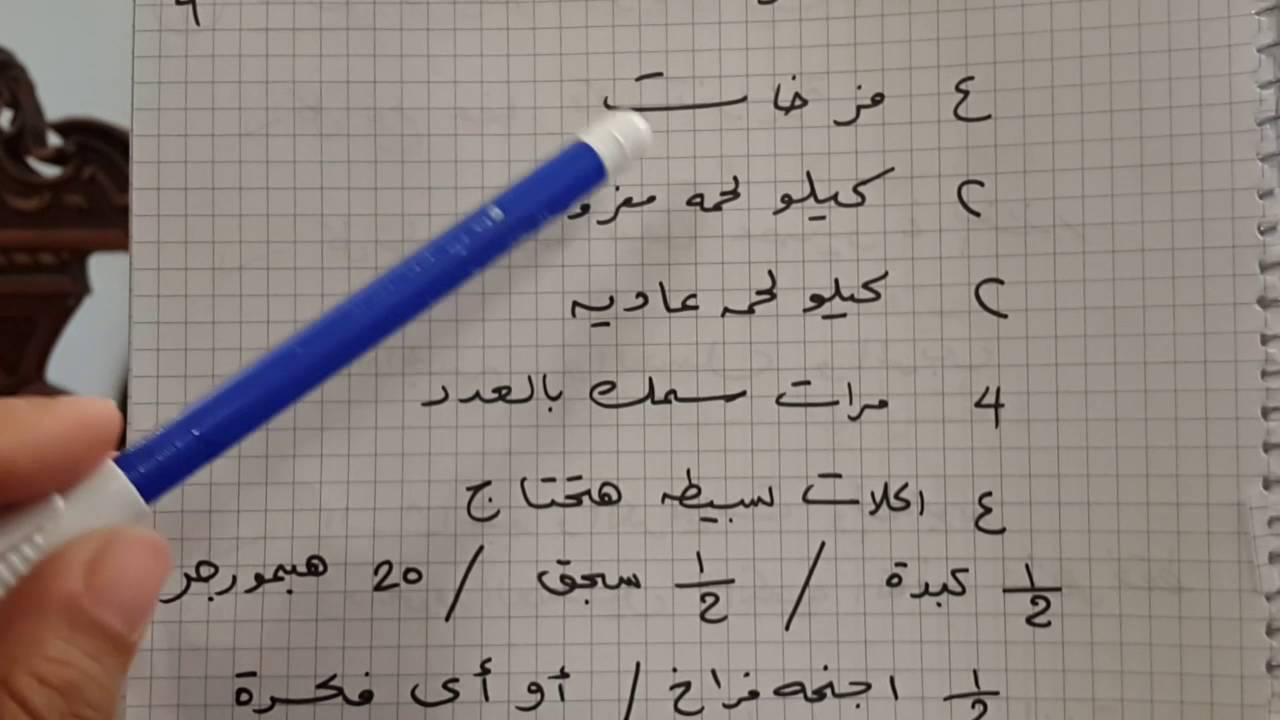 ٤ فرخات
٢ كيلو لحمه مفرو
٢ كيلو لحمه عاديه
4 مرات سمك بالعدد
٤ اكلات بسيطه هتحتاج
١/2 كبدة / ١/2 سجق / 20 هيمورجر
١/2 اجنحه فراخ / أو أى فكرة